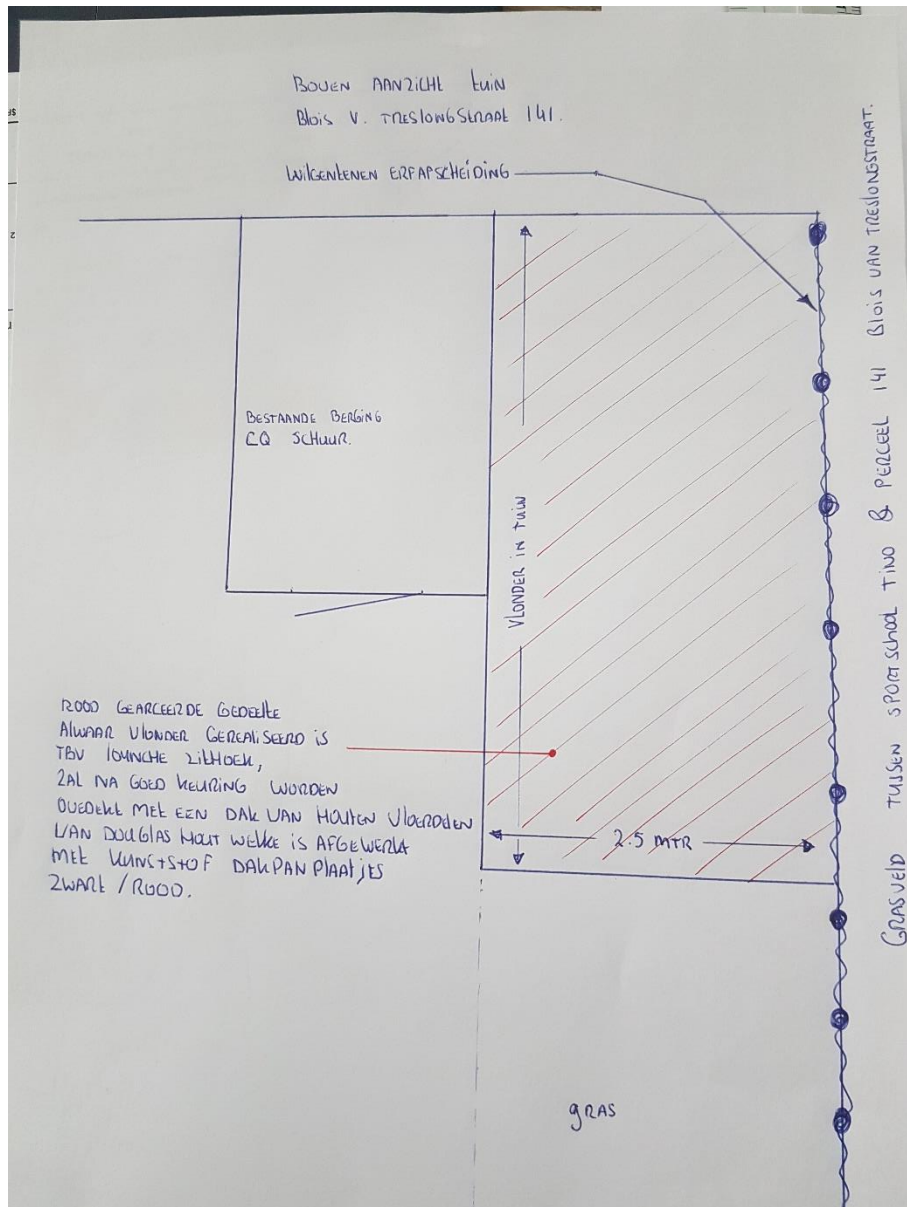 BOVEN AANZICHT tUiN
Blois V. TRESlONGStRAAt 141.
WilGENtENEN ERFAFSCHEiDiNG
BESTAANDE BERGiNG
CQ SCHUUR.
VLONDER iN tUiN
ROOD GEARCEERDE GEDEELtE
AlWAAR VlONDER GEREAliSEERD iS
TBV lOUNCHE ZitHOEK,
ZAL NA GOED KEURiNG WORDEN
OVEDEKt MEt EEN DAK VAN HOUtEN VlOERDElEN
VAN DOUGlAS HOUt WElKE iS AFGEWERKt
MEt KUNStStOF DAKPAN PlAAtjES
ZWARt / ROOD.
2.5 MTR
GRAS
GRASVElD tUSSEN SPORtSCHOOl TiNO & PERCEEL 141 BlOiS VAN TRESlONGSTRAAT.